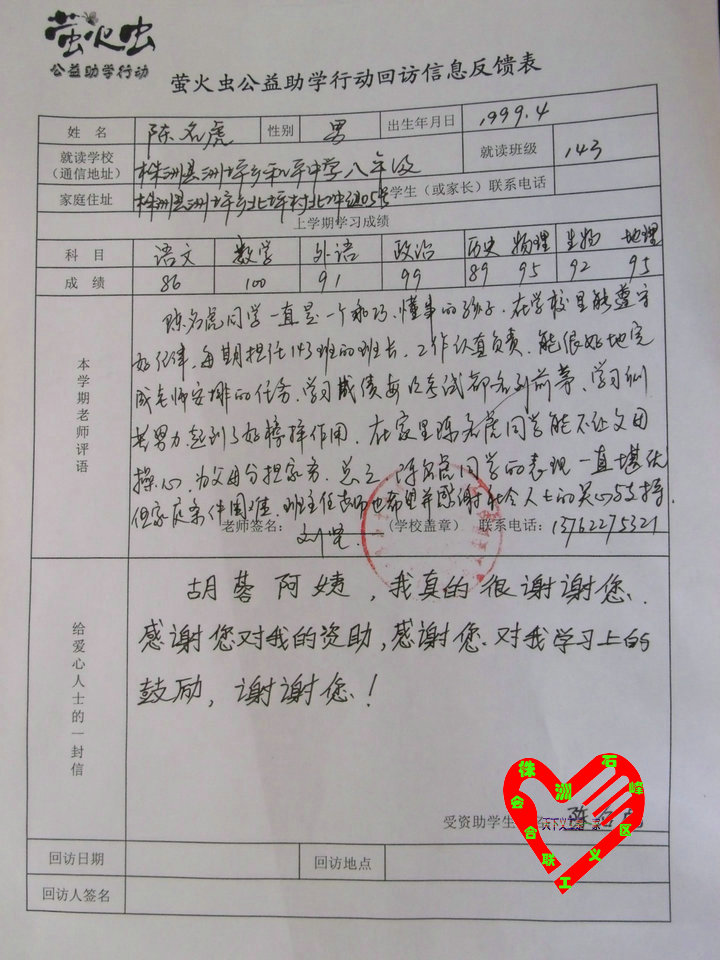 萤火虫
公益助学行动
萤火虫公益助学行动回访信息反馈表
姓 名 陈名虎 性别 男 出生年月日 1999.4
就读学校 株洲县洲坪乡和平中学八年级 就读班级 143
（通信地址）
家庭住址 株洲县洲坪乡北坪村北冲组05号 学生（或家长）联系电话
上学期学习成绩
科 目 语文 数学 外语 政治 历史 物理 生物 地理
成 绩 86 100 91 99 89 95 92 95
本学期老师评语
陈名虎同学一直是一个乖巧、懂事的孩子．在学校里能遵守
好纪律，每期担任143班的班长，工作认真负责，能很好地完
成老师安排的任务．学习成绩每次考试都名列前茅，学习刻
苦努力，起到了好榜样作用．在家里陈名虎同学能不让父母
操心，为父母分担家务．总之，陈名虎同学的表现一直堪优
但家庭条件困难．班主任老师也希望并感谢社会人士的关心与支持．
老师签名： 刘 （学校盖章） 联系电话：13762275321
给爱心人士的一封信
胡蓉阿姨，我真的很谢谢您．
感谢您对我的资助，感谢您．对我学习上的
鼓励，谢谢您！
受资助学生 陈名虎
株洲石峰区义工联合会
回访日期 回访地点
回访人签名